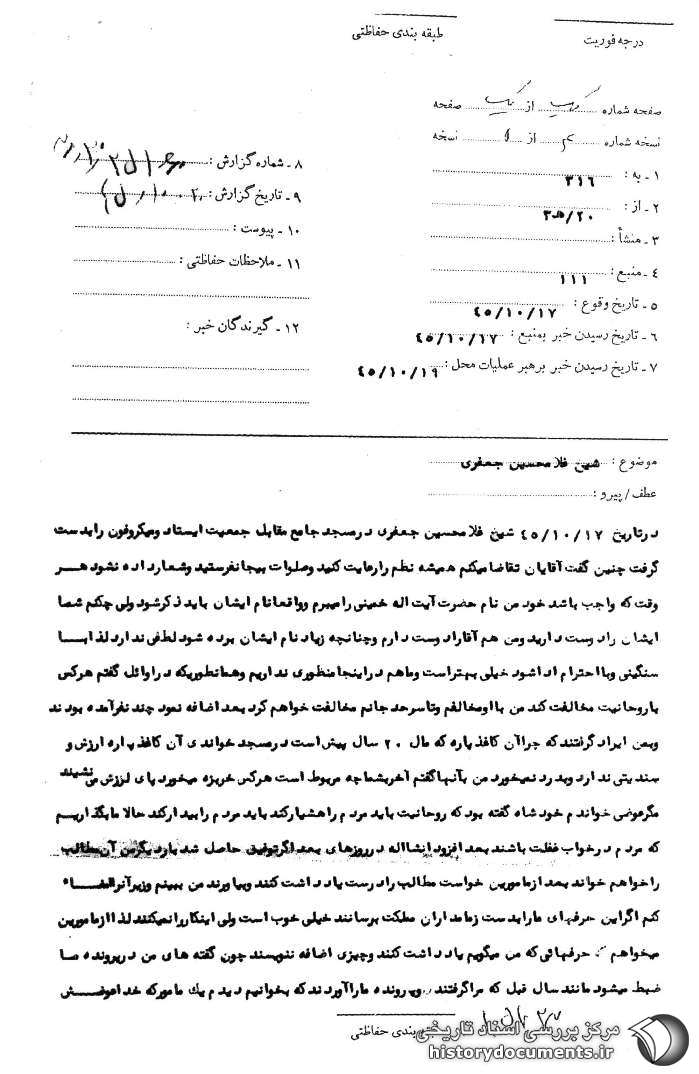 درجه فوریت
طبقه بندی حفاظتی
صفحه شماره یک از یک صفحه
نسخه شماره از نسخه
۱ ـ به : ۳۱۶
۲ ـ از : ۲۰/هـ۳
۳ ـ منشأ :
۴ ـ منبع : ۱۱۱
۵ ـ تاریخ وقوع : ۴۵/۱۰/۱۷
۶ ـ تاریخ رسیدن خبر بمنبع : ۴۵/۱۰/۱۷
۷ ـ تاریخ رسیدن خبر برهبر عملیات محل : ۴۵/۱۰/۱۹
۸ ـ شماره گزارش :
۹ ـ تاریخ گزارش :
۱۰ ـ پیوست :
۱۱ ـ ملاحظات حفاظتی :
۱۲ ـ گیرندگان خبر :
موضوع : شیخ غلامحسین جعفری
عطف/پیرو :
درتاریخ ۴۵/۱۰/۱۷ شیخ غلامحسین جعفری درمسجد جامع مقابل جمعیت ایستاد ومیکروفون رابدست
گرفت چنین گفت آقایان تقاضا میکنم همیشه نظم را رعایت کنید وصلوات بیجا نفرستید وشعار داده نشود هر
وقت که واجب باشد خود من نام حضرت آیت اله خمینی را میبرم وواقعا نام ایشان باید ذکر شود ولی چکنم شما
ایشان را دوست دارید ومن هم آقا را دوست دارم وچنانچه زیاد نام ایشان برده شود لطفی ندارد لذا با
سنگینی وبا احترام ادا شود خیلی بهتر است وما هم دراینجا منظوری نداریم وهمانطوریکه در اوائل گفتم هرکس
با روحانیت مخالفت کند من با او مخالفم وتا سرحد جانم مخالفت خواهم کرد بعد اضافه نمود چند نفر آمده بودند
وبمن ایراد گرفتند که چرا آن کاغذ پاره که مال ۲۰ سال پیش است درمسجد خواندی آن کاغذ پاره ارزش و
سندیتی ندارد وبدرد نمیخورد من بآنها گفتم آخر بشما چه مربوط است هرکس خربزه میخورد پای لرزش می نشیند
مگر عوضی خواندم خود شاه گفته بود که روحانیت باید مردم را هشیار کند باید مردم را بیدار کند حالا ما بگذاریم
که مردم در خواب غفلت باشند بعد افزود انشااله درروزهای بعد اگر توفیق حاصل شد بار دیگر من آن مطالب
را خواهم خواند بعد ازمامورین خواست مطالب را درست یادداشت کنند وبیاورند من ببینم وزیر آنرا امضاء
کنم اگر این حرفهای ما را بدست زمامداران مملکت برسانند خیلی خوب است ولی اینکار را نمیکنند لذا ازمامورین
میخواهم که حرفهائی که من میگویم یادداشت کنند وچیزی اضافه ننویسند چون گفته های من درپرونده ما
ضبط میشود مانند سال قبل که مرا گرفتند وپرونده ما را آوردند که بخوانیم دیدم یك مامور که خدا عوضش
طبقه بندی حفاظتی
مرکز بررسی اسناد تاریخی
historydocuments.ir